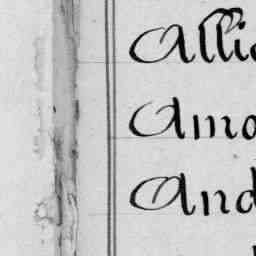 Alli
Amo
And